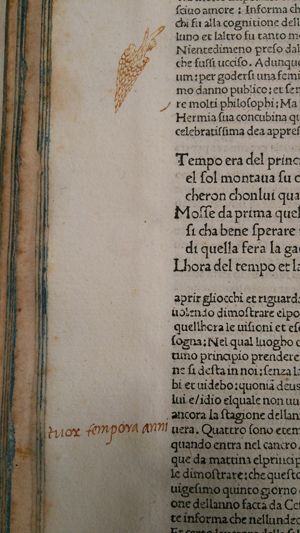 sciuo amore: Informa ch
chi fu alla cognitione delle
luno et laltro fu tanto mo
Nientedimeno preso dal
che fussi ucciso. Adunque
um: per godersi una femi
mo danno publico; et sen
re molti philosophi; Ma
Hermia sua concubina qu
celebratissima dea appres
Tempo era del princi
el sol montaua su c
cheron chonlui qua
Mosse da prima quel
si cha bene sperare
di quella fera la gae
Lhora del tempo et la
aprir gliocchi et riguarda
uolendo dimostrare elpo
quellhora le uisioni et es
sogna; Nel qual luogho
tuno principio prendere
si desta in noi; senza l
bi et uidebo; quoniā deus
lui e/idio elquale non uu
ancora la stagione dellan
tuor tempora anni
uera. Quattro sono etem
quando entra nel cancro.
que da mattina elprincip
le dimostrare; che questo
uigesimo quinto giorno
one dellanno facta da Ce
te informa che nellundec